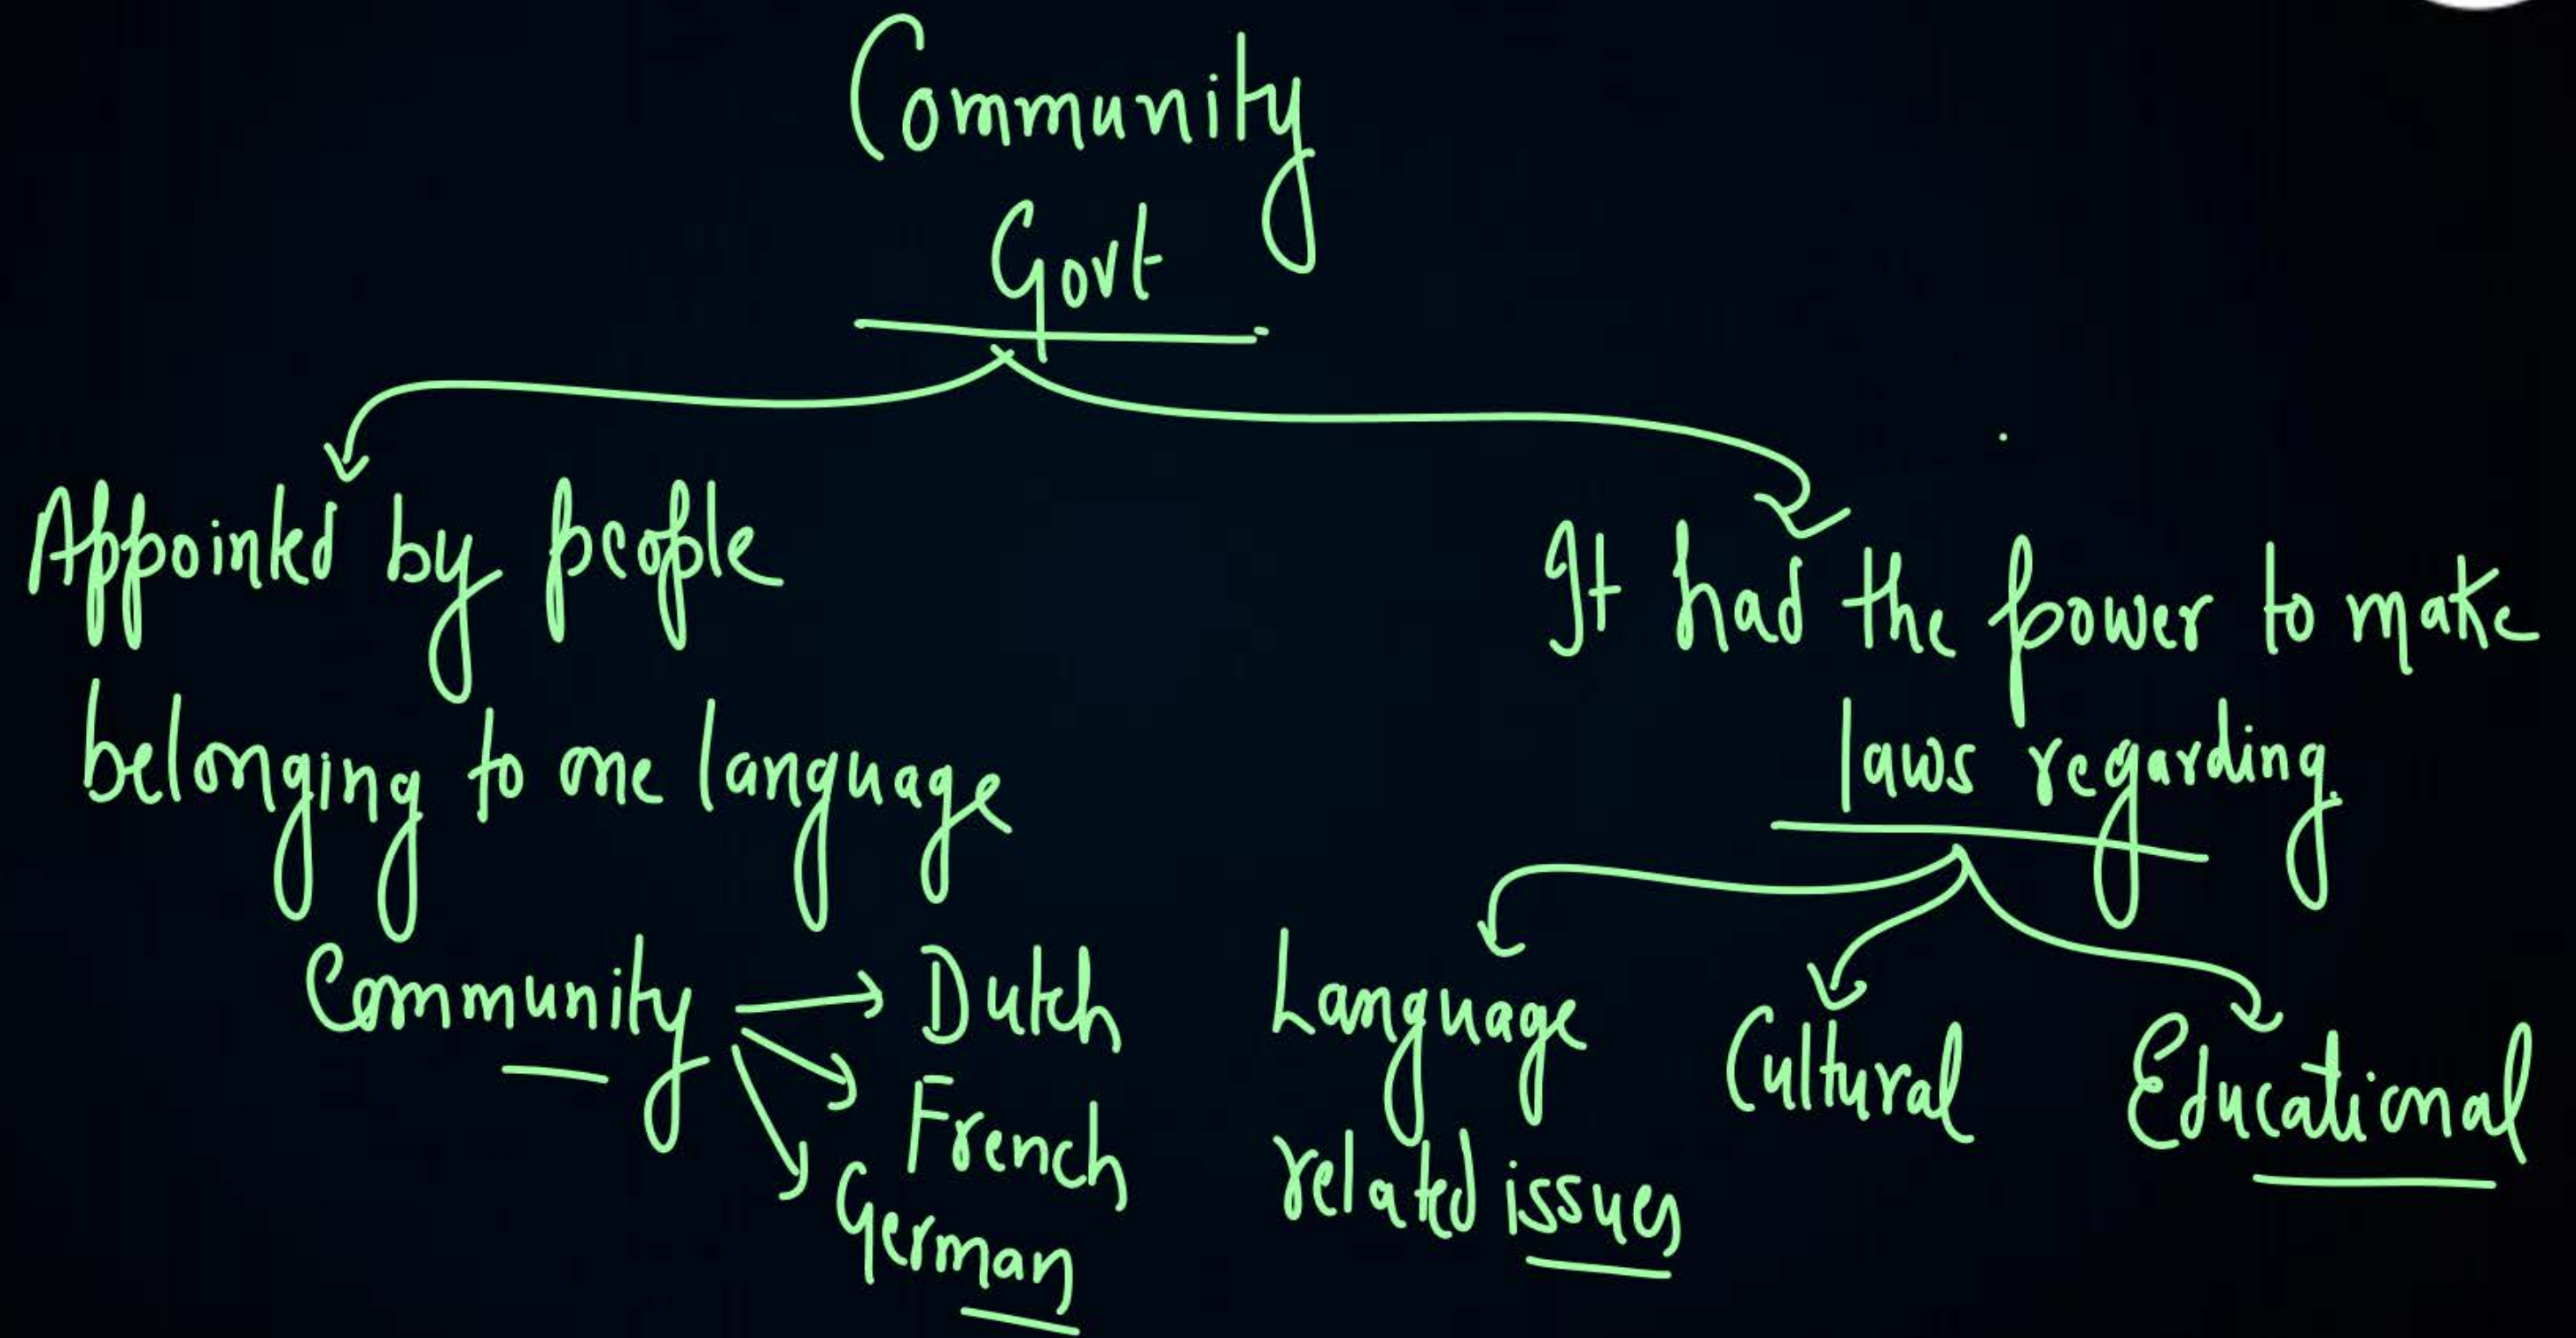 Community
Govt
Appointed by people
belonging to one language
Community → Dutch
French
German
It had the power to make
laws regarding
Language
related issues
Cultural
Educational